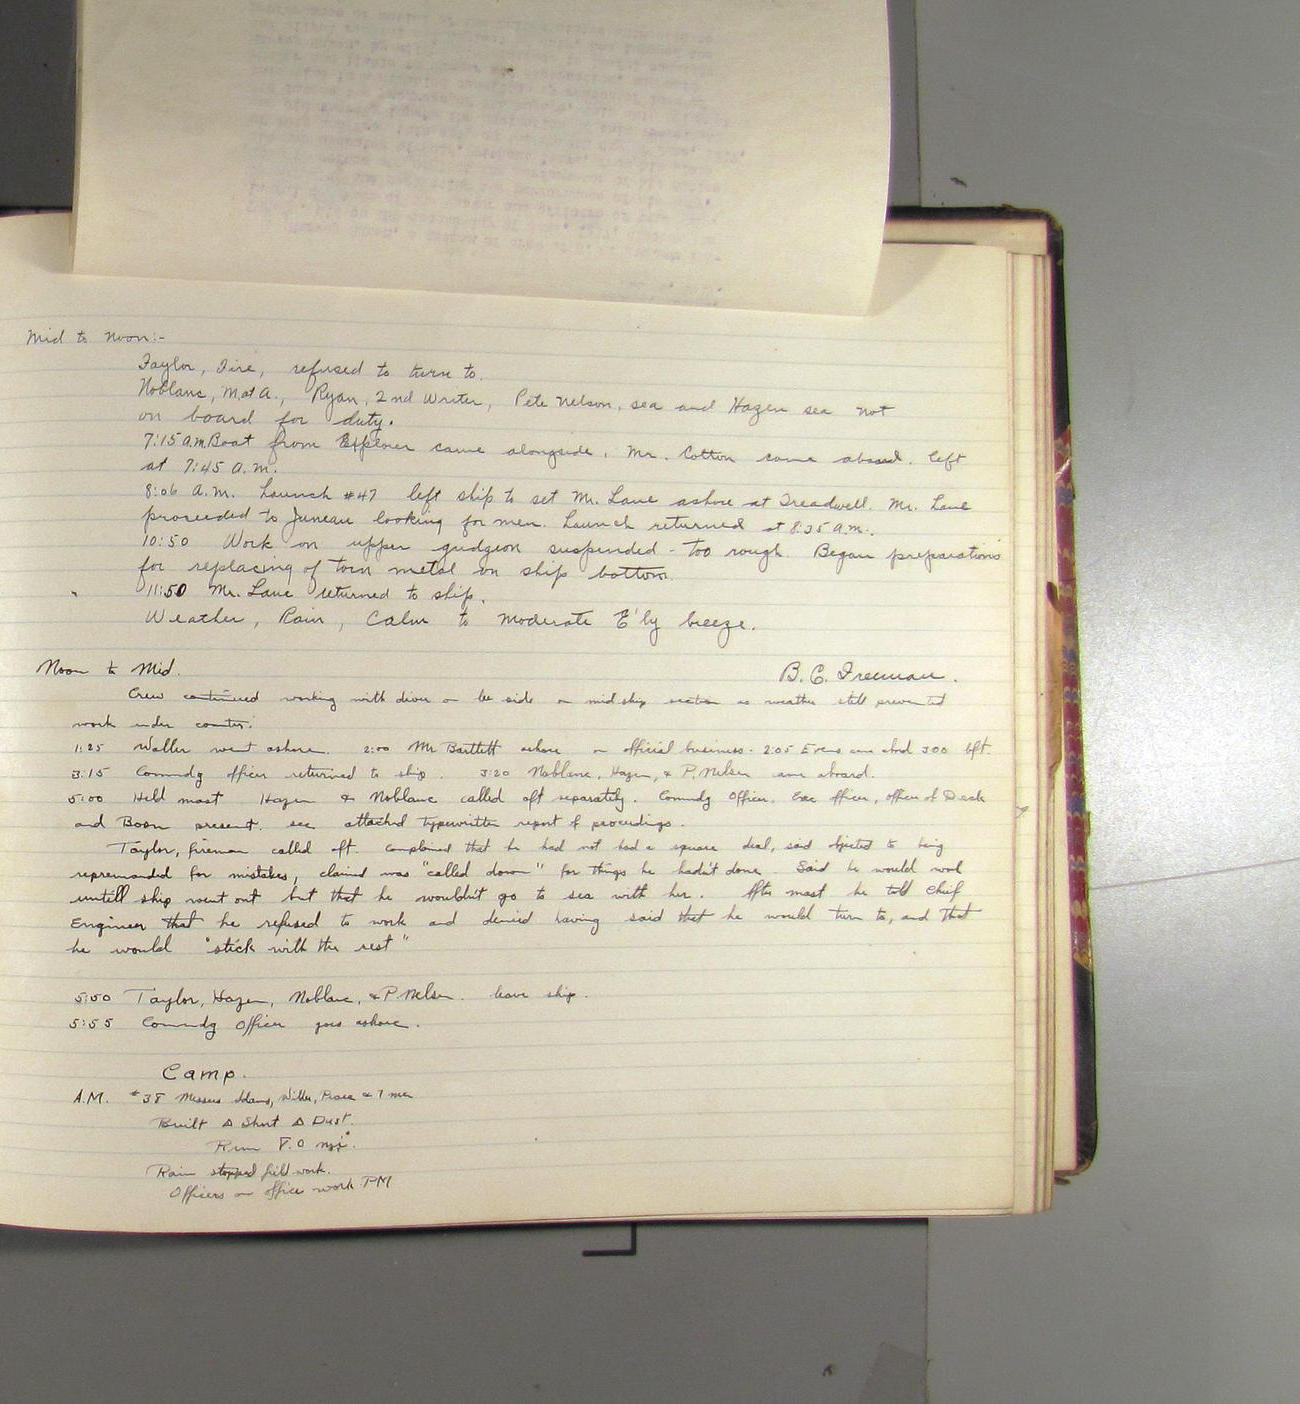 Mid to Noon:-
Taylor, Fire, refused to turn to.
Noblanc, M.at A., Ryan, 2nd Writer, Pete Nelson, sea and Hazen sea not
on board for duty.
7:15 a.m. Boat from Explorer came alongside. Mr. Cotton came aboard. left
at 7:45 A.M.
8:06 A.M. Launch #47 left ship to set Mr. Lane ashore at Treadwell. Mr. Lane
proceeded to Juneau looking for men. Launch returned at 8:35 A.M.
10:50 Work on upper gudgeon suspended - too rough. Began preparations
for replacing of torn metal on ship bottom.
11:50 Mr. Lane returned to ship.
Weather, Rain, Calm to moderate E'ly breeze.
Noon to Mid.
B. C. Freeman.
Crew continued working with diver on lee side on midship section as weather still prevented
work under counter.
1:25 Waller went ashore. 2:00 Mr Bartlett ashore on official business. 2:05 Evans came abrd 300 left.
3:15 Comndg officer returned to ship. 3:20 Noblanc, Hazen, & P. Nelsen came aboard.
5:00 Held mast Hazen & Noblanc called aft separately. Comndg Officer, Exe officer, officer of Deck
and Bosn present. see attached typewritten report of proceedings.
Taylor, fireman called aft. complained that he had not had a square deal, said objected to being
repremanded for mistakes, claimed was "called down" for things he hadn't done. Said he would
untill ship went out but that he wouldn't go to sea with her. After mast he told Chief
Engineer that he refused to work and denied having said that he would turn to, and that
he would "stick with the rest"
5:50 Taylor, Hazen, Noblanc, & P Nelsen leave ship.
5:55 Comndg Officer goes ashore.
Camp.
A.M. #38 Messers Adams, & 7 men
Built △ Short △ Dust.
Run 8.0
Rain stopped field work.
Officers on office work PM